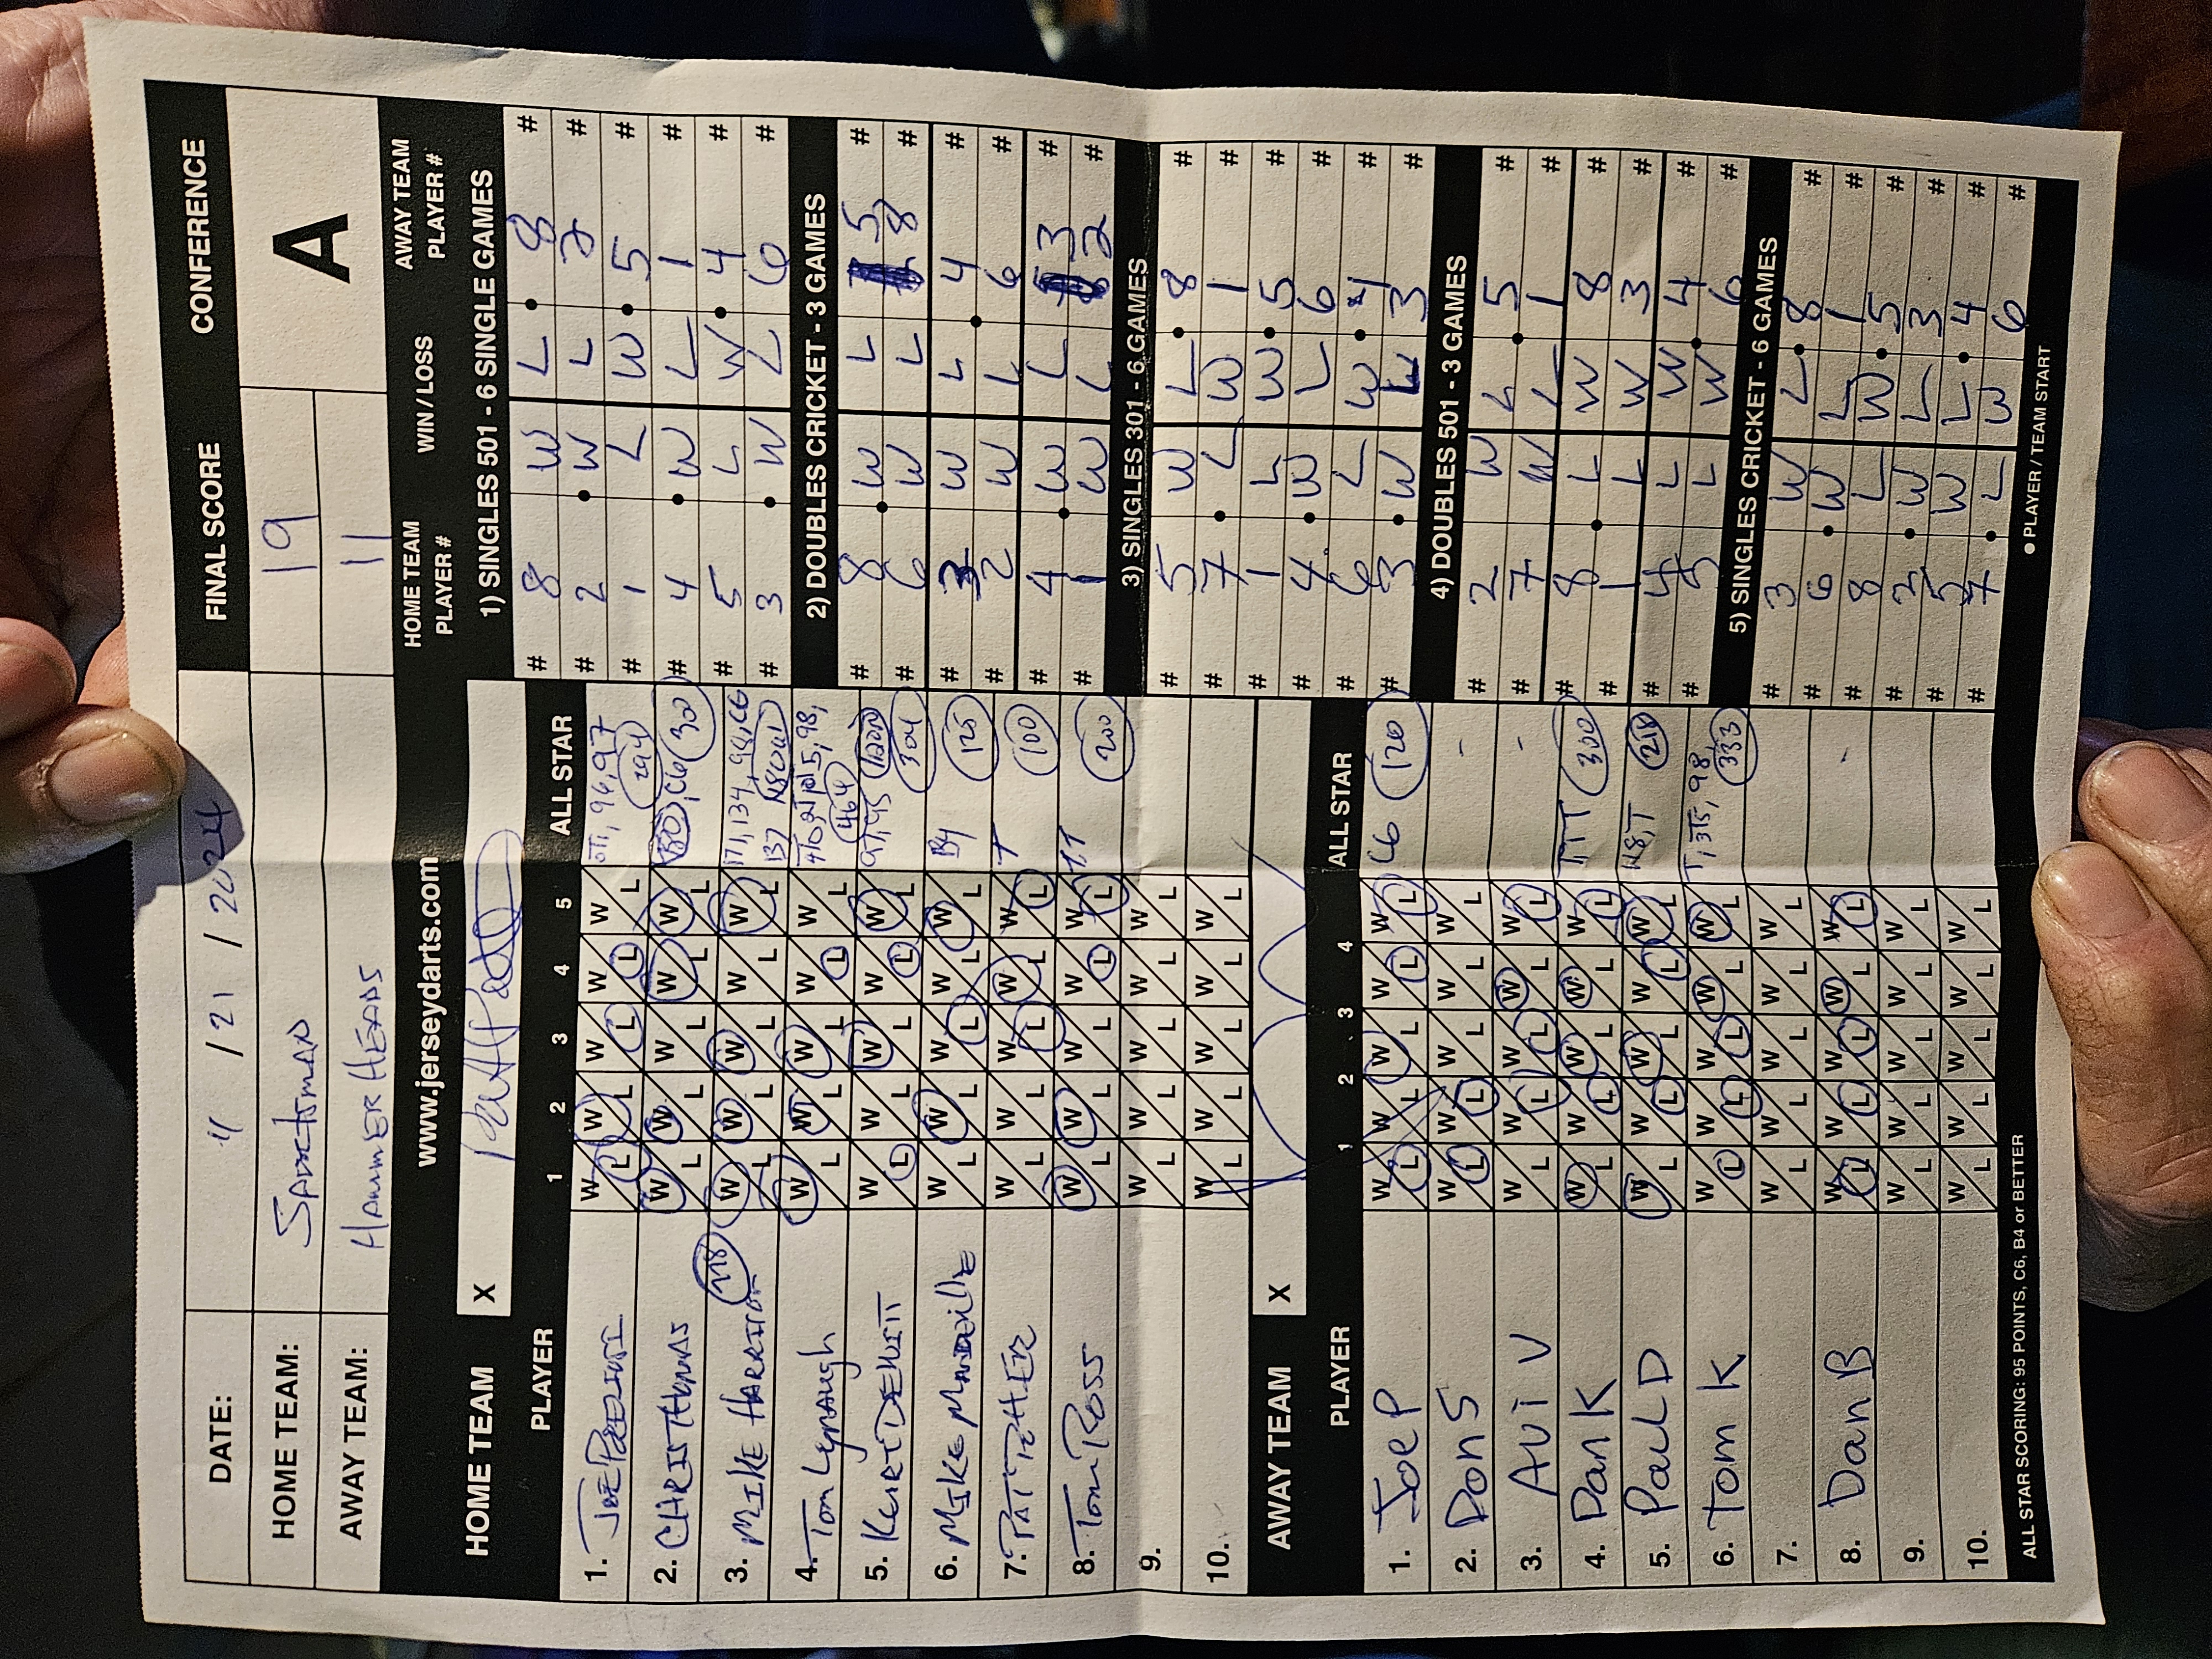 DATE: 11 / 21 / 2024 FINAL SCORE CONFERENCE
HOME TEAM: 19 A
AWAY TEAM: HAMMER HEADS 11
www.jerseydarts.com
HOME TEAM X
PLAYER 1 2 3 4 5 ALL STAR
1. W L W L W L W L W L 96, 97
2. CHRIS THOMAS W L W L W L W L W L C6
3. MIKE HARRISON W L W L W L W L W L 171, 134
4. Tom Lynaugh W L W L W L W L W L 464
5. Kurt DEWITT W L W L W L W L W L 95 301
6. MIKE MANDEVILLE W L W L W L W L W L B4 120
7. W L W L W L W L W L T 100
8. Tom Ross W L W L W L W L W L 200
9. W L W L W L W L W L
10. W L W L W L W L W L
AWAY TEAM X
PLAYER 1 2 3 4 ALL STAR
1. JOE P W L W L W L W L W L C6 120
2. Don S W L W L W L W L W L -
3. AViV W L W L W L W L W L -
4. Dan K W L W L W L W L W L TTT 300
5. PauL D W L W L W L W L W L 218
6. Tom K W L W L W L W L W L 98, 333
7. W L W L W L W L W L
8. Dan B W L W L W L W L W L -
9. W L W L W L W L W L
10. W L W L W L W L W L
ALL STAR SCORING: 95 POINTS, C6, B4 or BETTER
HOME TEAM PLAYER # WIN / LOSS AWAY TEAM PLAYER #
1) SINGLES 501 - 6 SINGLE GAMES
# 8 W L 8 #
# 2 W L 2 #
# 1 L W 5 #
# 4 W L 1 #
# 5 L W 4 #
# 3 W L 6 #
2) DOUBLES CRICKET - 3 GAMES
# 8 W L 5 #
# 6 W L 8 #
# 3 W L 4 #
# 2 W L 6 #
# 4 W L 3 #
# 1 W L 2 #
3) SINGLES 301 - 6 GAMES
# 5 W L 8 #
# 7 L W 1 #
# 1 L W 5 #
# 4 W L 6 #
# 6 L W 4 #
# 3 W L 3 #
4) DOUBLES 501 - 3 GAMES
# 2 W L 5 #
# 7 W L 1 #
# 8 L W 8 #
# 1 L W 3 #
# 4 L W 4 #
# 5 L W 6 #
5) SINGLES CRICKET - 6 GAMES
# 3 W L 8 #
# 6 W L 1 #
# 8 L W 5 #
# 2 W L 3 #
# 5 W L 4 #
# 7 L W 6 #
● PLAYER / TEAM START